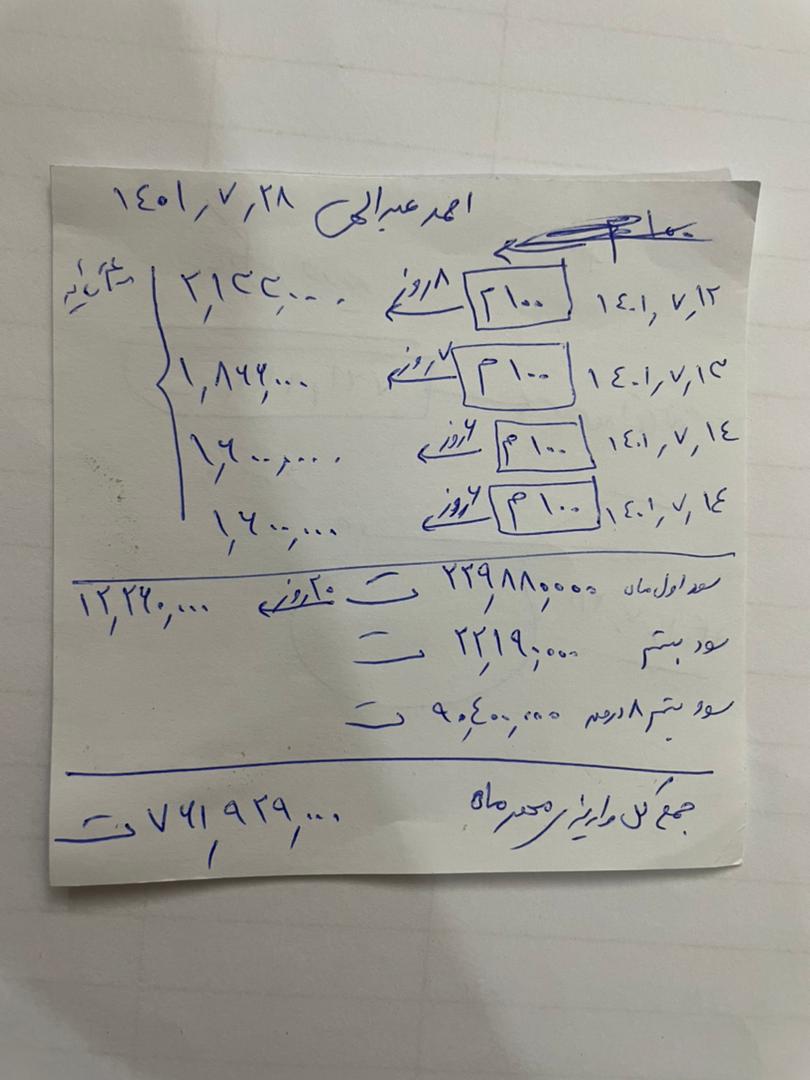 احمد عبدالهی ۱۴۰۱٫۷٫۲۸
۱۴۰۱٫۷٫۱۲ ۱۰۰ م ۸ روز ۲٫۱۳۳٫۰۰۰
۱۴۰۱٫۷٫۱۳ ۱۰۰ م ۷ روز ۱٫۸۶۶٫۰۰۰
۱۴۰۱٫۷٫۱۴ ۱۰۰ م ۶ روز ۱٫۶۰۰٫۰۰۰
۱۴۰۱٫۷٫۱۴ ۱۰۰ م ۶ روز ۱٫۶۰۰٫۰۰۰
سود اول ماه ۲۲۹٫۸۸۰٫۰۰۰ ت ۲۰ روز ۱۲٫۲۶۰٫۰۰۰
سود بیستم ۲۲٫۱۹۰٫۰۰۰ ت
سود بیستم ۸ درصد ۹۰٫۴۰۰٫۰۰۰ ت
جمع کل واریزی مهر ماه ۷۶۱٫۹۲۹٫۰۰۰ ت